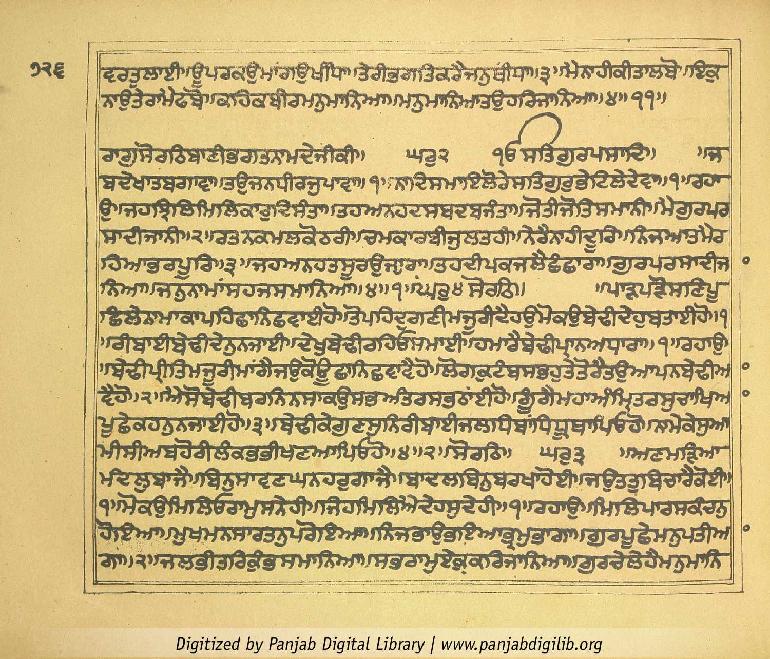 ੭੨੬
ਵਰਤੁਲਾਈ॥ਊਪਰਕਉਮਾਂਗਉਖੀਂਧਾ॥ਤੇਰੀਭਗਤਿਕਰੈਜਨੁਥੀਧਾ॥੩॥ਮੈਨਾਹੀਕੀਤਾਲਬੋ॥ਇਕੁ
ਨਾਉਤੇਰਾਮੈਫਬੋ॥ਕਹਿਕਬੀਰਮਨੁਮਾਨਿਆ॥ਮਨੁਮਾਨਿਆਤਉਹਰਿਜਾਨਿਆ॥੪॥੧੧॥
ਰਾਗੁਸੋਰਠਿਬਾਣੀਭਗਤਨਾਮਦੇਜੀਕੀ॥ ਘਰੁ੨ ੴਸਤਿਗੁਰਪ੍ਰਸਾਦਿ॥ ॥ਜ
ਬਦੇਖਾਤਬਗਾਵਾ॥ਤਉਜਨਧੀਰਜੁਪਾਵਾ॥੧॥ਨਾਦਿਸਮਾਇਲੋਰੇਸਤਿਗੁਰੁਭੇਟਿਲੇਦੇਵਾ॥੧॥ਰਹਾ
ਉ॥ਜਹਝਿਲਿਮਿਲਿਕਾਰੁਦਿਸੰਤਾ॥ਤਹਅਨਹਦਸਬਦਬਜੰਤਾ॥ਜੋਤੀਜੋਤਿਸਮਾਨੀ॥ਮੈਗੁਰਪਰ
ਸਾਦੀਜਾਨੀ॥੨॥ਰਤਨਕਮਲਕੋਠਰੀ॥ਚਮਕਾਰਬੀਜੁਲਤਹੀ॥ਨੇਰੈਨਾਹੀਦੂਰਿ॥ਨਿਜਆਤਮੈਰ
ਹਿਆਭਰਪੂਰਿ॥੩॥ਜਹਅਨਹਤਸੂਰਉਜ੍ਯਾਰਾ॥ਤਹਦੀਪਕਜਲੈਛੰਛਾਰਾ॥ਗੁਰਪਰਸਾਦੀਜ
ਨਿਆ॥ਜਨੁਨਾਮਾਸਹਜਸਮਾਨਿਆ॥੪॥੧॥ਘਰੁ੪ ਸੋਰਠਿ॥ ॥ਪਾੜਪੜੋਸਣਿਪੂ
ਛਿਲੇਨਾਮਾਕਾਪਹਿਛਾਨਿਛਵਾਈਹੋ॥ਤੋਪਹਿਦੁਗਣੀਮਜੂਰੀਦੈਹਉਮੋਕਉਬੇਢੀਦੇਹੁਬਤਾਈਹੋ॥੧
॥ਰੀਬਾਈਬੇਢੀਦੇਨੁਨਜਾਈ॥ਦੇਖੁਬੇਢੀਰਹਿਓਸਮਾਈ॥ਹਮਾਰੈਬੇਢੀਪ੍ਰਾਨਅਧਾਰਾ॥੧॥ਰਹਾਉ
॥ਬੇਢੀਪ੍ਰੀਤਿਮਜੂਰੀਮਾਂਗੈਜਉਕੋਊਛਾਨਿਛਵਾਵੈਹੋ॥ਲੋਗਕੁਟੰਬਸਭਹੁਤੇਤੋਰੈਤਉਆਪਨਬੇਢੀਆ
ਵੈਹੋ॥੨॥ਐਸੋਬੇਢੀਬਰਨਿਨਸਾਕਉਸਭਅੰਤਰਸਭਠਾਂਈਹੋ॥ਗੂੰਗੈਮਹਾਅੰਮ੍ਰਿਤਰਸੁਚਾਖਿਆ
ਪੂਛੇਕਹਨੁਨਜਾਈਹੋ॥੩॥ਬੇਢੀਕੇਗੁਣਸੁਨਿਰੀਬਾਈਜਲਧਿਬਾਂਧਿਧ੍ਰੂਥਾਪਿਓਹੋ॥ਨਾਮੇਕੇਸੁਆ
ਮੀਸੀਅਬਹੋਰੀਲੰਕਭਭੀਖਣਆਪਿਓਹੋ॥੪॥੨॥ਸੋਰਠਿ॥ ਘਰੁ੩ ॥ਅਣਮੜਿਆ
ਮੰਦਲੁਬਾਜੈ॥ਬਿਨੁਸਾਵਣਘਨਹਰੁਗਾਜੈ॥ਬਾਦਲਬਿਨੁਬਰਖਾਹੋਈ॥ਜਉਤਤੁਬਿਚਾਰੈਕੋਈ॥
੧॥ਮੋਕਉਮਿਲਿਓਰਾਮੁਸਨੇਹੀ॥ਜਿਹਮਿਲਿਐਦੇਹਸੁਦੇਹੀ॥੧॥ਰਹਾਉ॥ਮਿਲਿਪਾਰਸਕੰਚਨੁ
ਹੋਇਆ॥ਮੁਖਮਨਸਾਰਤਨੁਪਰੋਇਆ॥ਨਿਜਭਾਉਭਇਆਭ੍ਰਮੁਭਾਗਾ॥ਗੁਰਪੂਛੇਮਨੁਪਤੀਆ
ਗਾ॥੨॥ਜਲਭੀਤਰਿਕੁੰਭਸਮਾਨਿਆ॥ਸਭਰਾਮੁਏਕੁਕਰਿਜਾਨਿਆ॥ਗੁਰਚੇਲੇਹੈਮਨੁਮਾਨਿ
Digitized by Panjab Digital Library | www.panjabdigilib.org